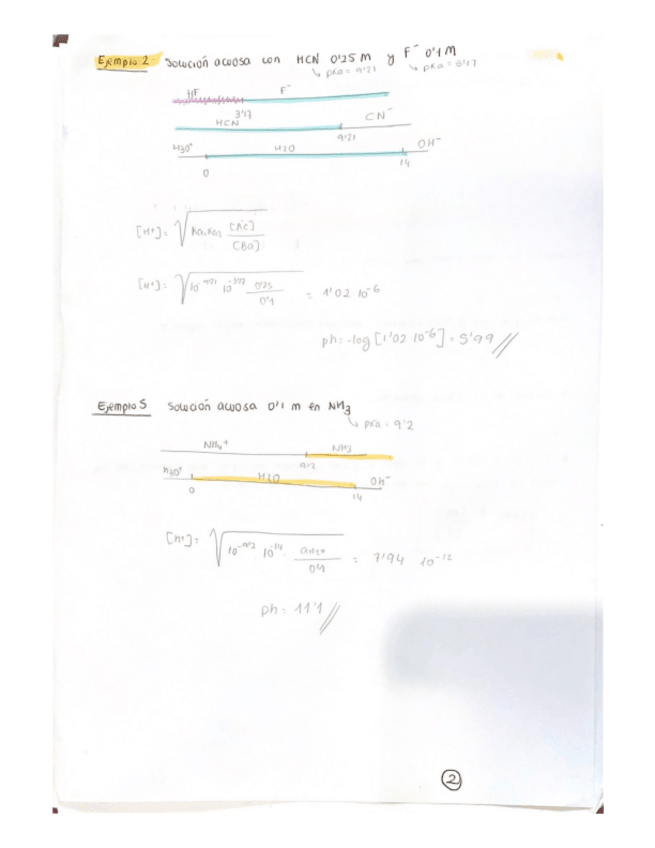 Ejemplo 2: Solución acuosa con HCN 0'25 M y F⁻ 0'1 M
↳ pKa = 9'21 ↳ pKa = 3'17
HF F⁻
3'17
HCN CN⁻
9'21
H3O⁺ H2O OH⁻
0 14
[H⁺] = √ Ka₁.Ka₂ [Ac]
[Ba]
[H⁺] = √ 10⁻⁹'²¹ 10⁻³'¹⁷ 0'25 = 1'02 10⁻⁶
0'1
ph = -log [1'02 10⁻⁶] = 5'99 //
Ejemplo 5 Solución acuosa 0'1 m en NH3
↳ pKa = 9'2
NH4⁺ NH3
9'2
H3O⁺ H2O OH⁻
0 14
[H⁺] = √ 10⁻⁹'² 10⁻¹⁴ . = 7'94 10⁻¹²
0'1
ph = 11'1 //
2